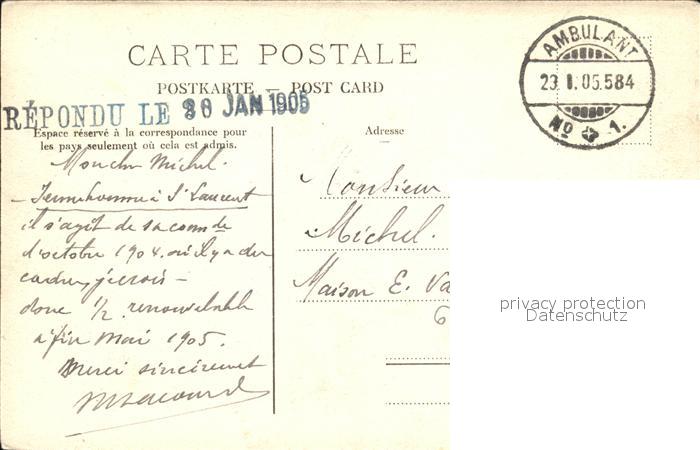 CARTE POSTALE
POSTKARTE — POST CARD
AMBULANT
23.I.05.584
No 1.
RÉPONDU LE 30 JAN 1905
Espace réservé à la correspondance pour
les pays seulement où cela est admis.
Adresse
Mon cher Michel.
à St Laurent
il s'agit de sa comde
d'octobre 1904. où il y a des
cadres, je crois —
donc 1/2 renouvelable
à fin Mai 1905.
Merci sincèrement
Monsieur
Michel.
Maison E. Va
privacy protection
Datenschutz